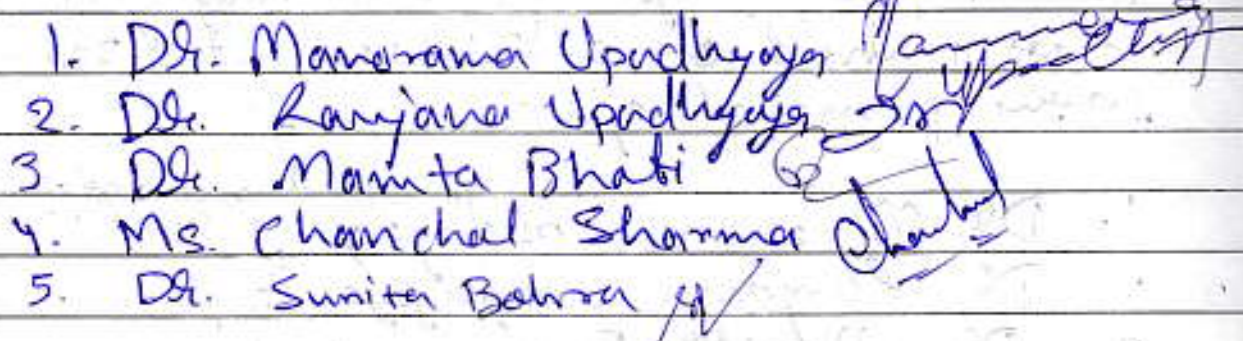 1. Dr. Manorama Upadhyaya
2. Dr. Ranjana Upadhyaya
3. Dr. Mamta Bhati
4. Ms. Chanchal Sharma
5. Dr. Sunita Bohra